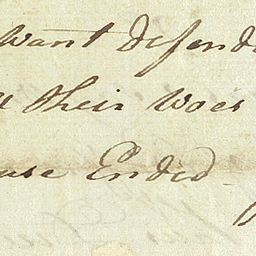 Want defend
their Woes
Ended